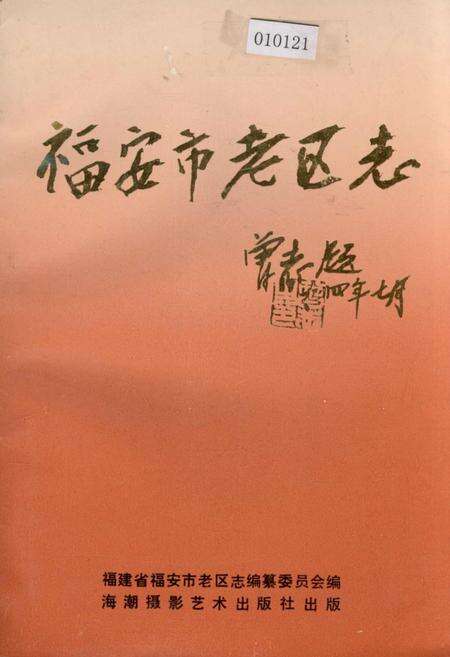 010121
福安市老区志
曾志题
九四年七月
福建省福安市老区志编纂委员会编
海潮摄影艺术出版社出版